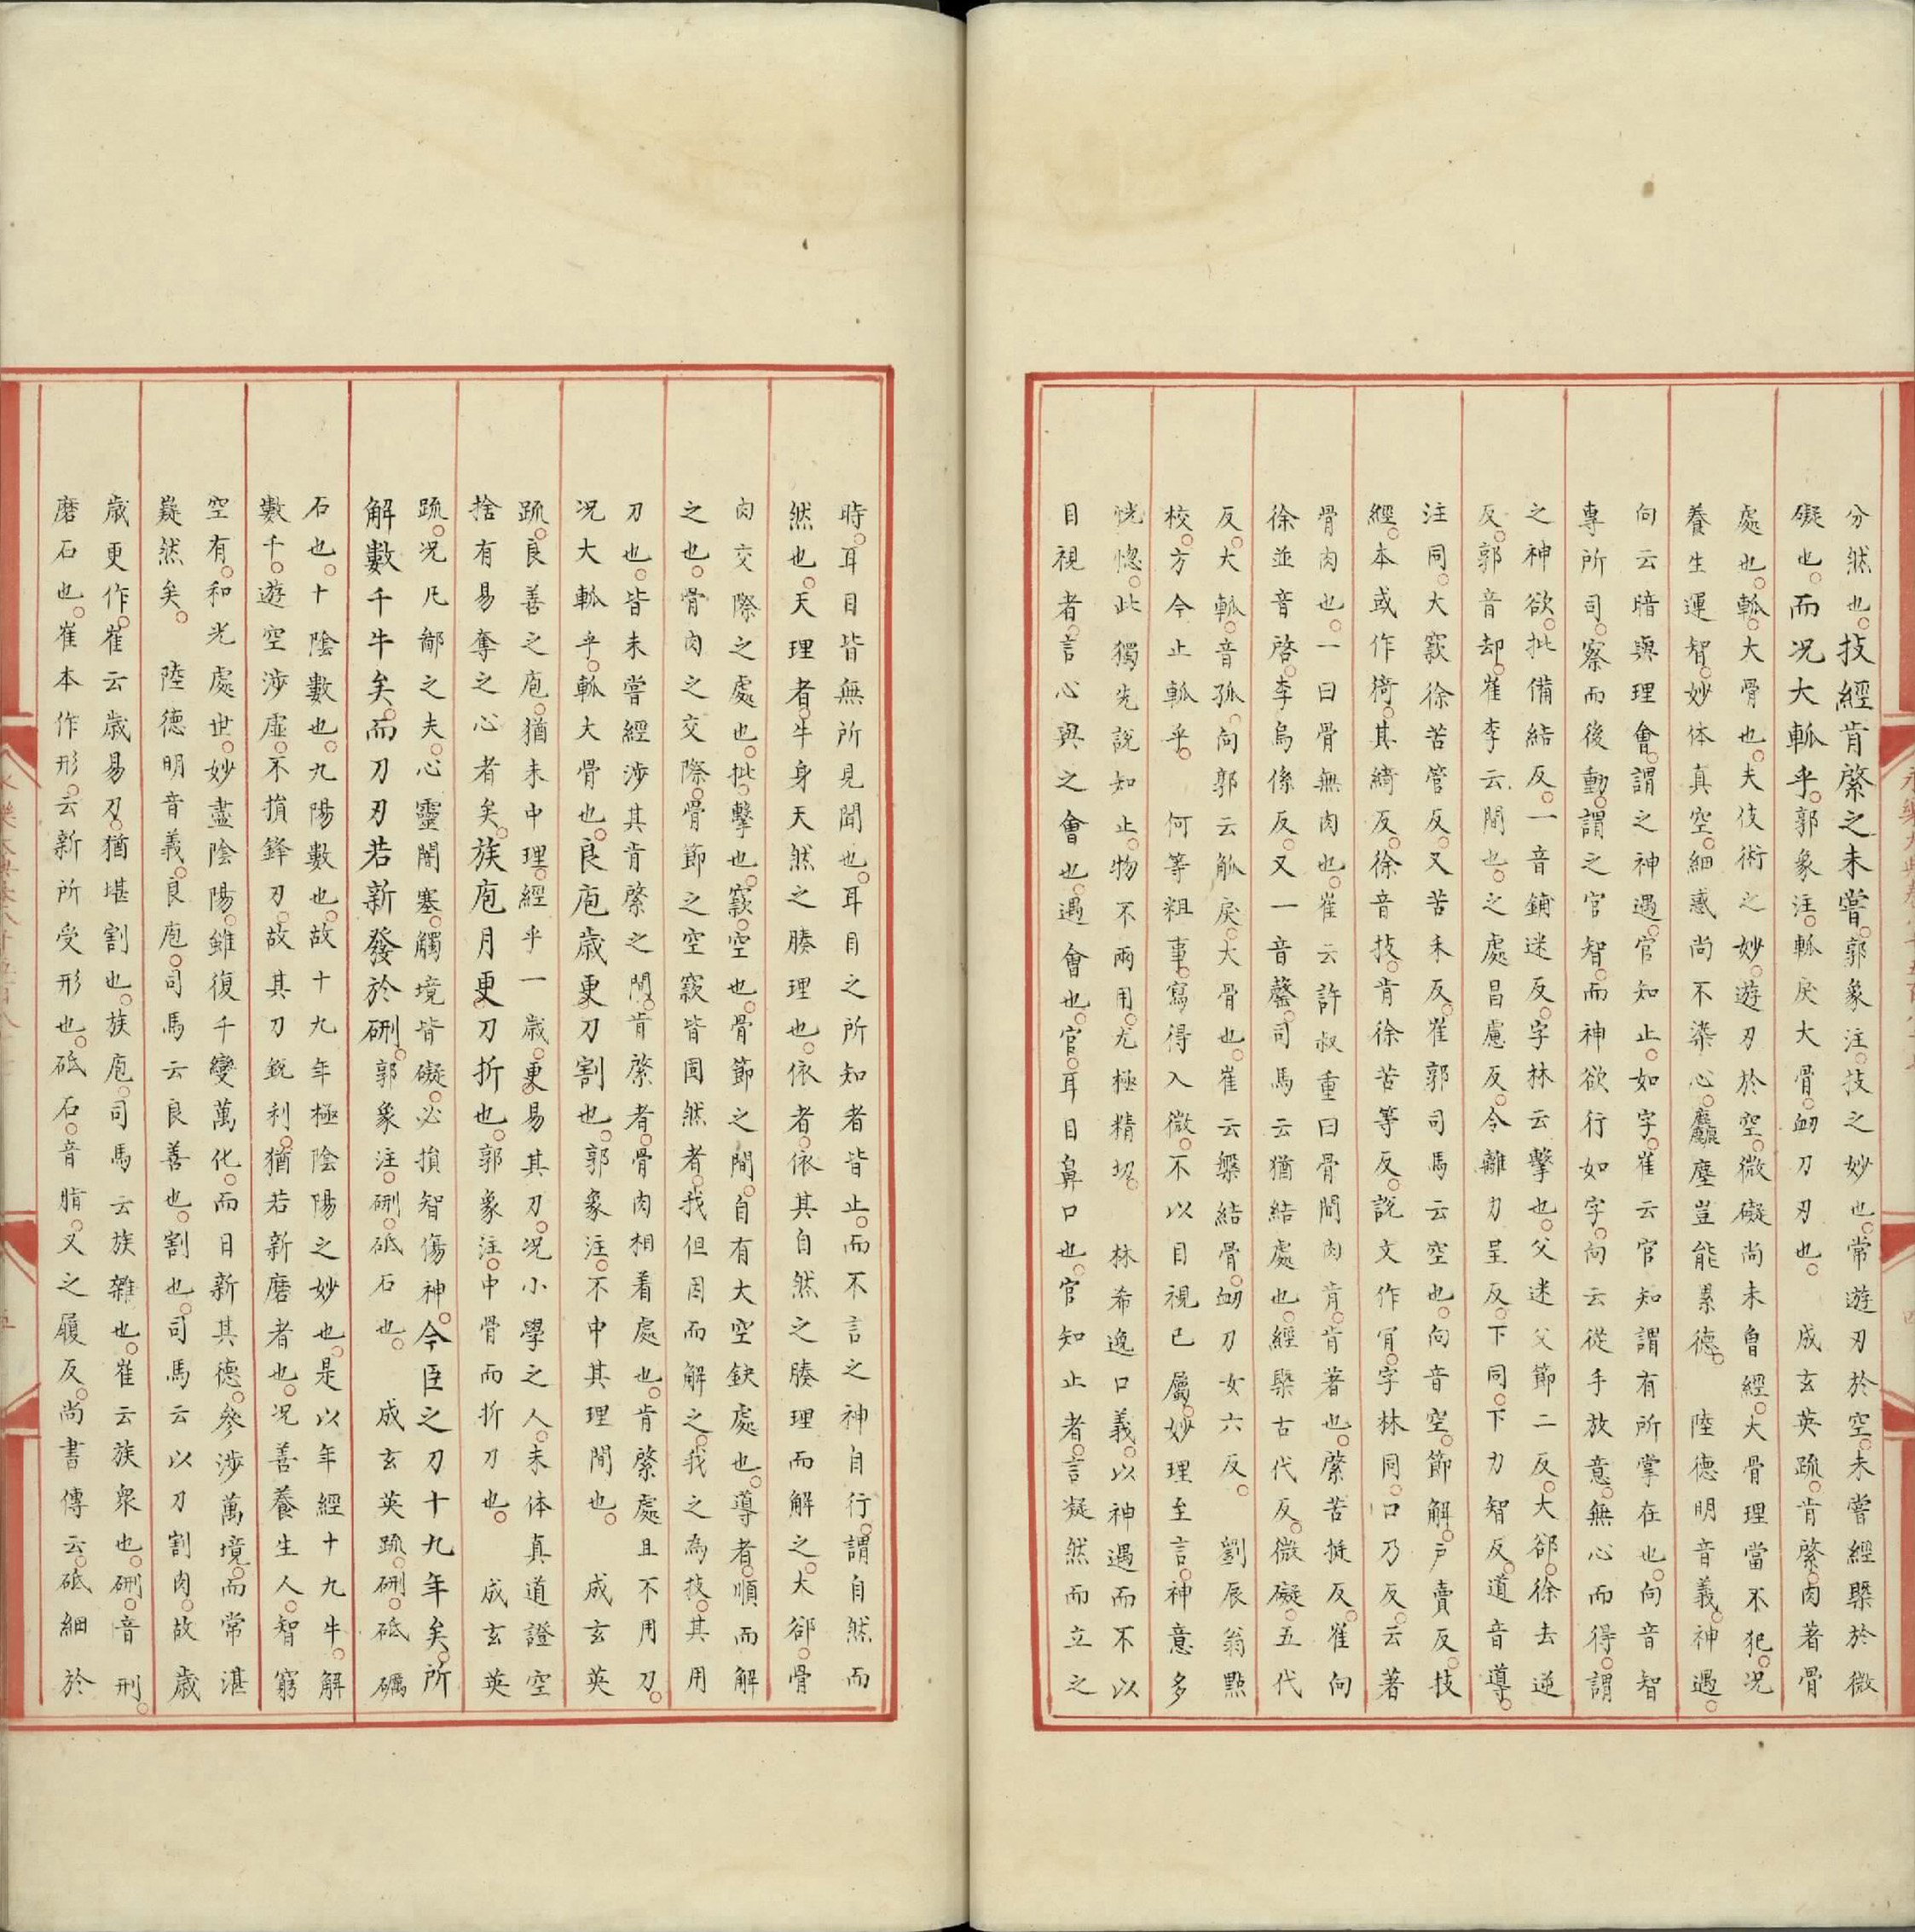 分然也技經肯綮之未嘗郭象注技之妙也常遊刃於空未嘗經槩於微
礙也而况大軱乎郭象注軱戾大骨衂刀刃也 成玄英䟽肯綮肉著骨
處也軱大骨也夫伎術之妙遊刃於空微礙尚未曾經大骨理當不犯况
養生運智妙体真空細惑尚不染心麤塵豈能累德 陸德明音義神遇
向云暗與理會謂之神遇官知止如字崔云官知謂有所掌在也向音智
專所司察而後動謂之官智而神欲行如字向云從手放意無心而得謂
之神欲批備結反一音鋪迷反字林云擊也父迷父節二反大郤徐去逆
反郭音却崔李云間也之處昌慮反令離力呈反下同下力智反道音導
注同大窾徐苦管反又苦禾反崔郭司馬云空也向音空節解戸賣反技
經本或作猗其綺反徐音技肯徐苦等反說文作肎字林同口乃反云著
骨肉也一曰骨無肉也崔云許叔重曰骨間肉肯肯著也綮苦挺反崔向
徐並音啓李烏係反又一音罄司馬云猶結處也經槩古代反微礙五代
反大軱音孤向郭云觚戾大骨也崔云槃結骨衂刀女六反 劉辰翁㸃
校方今止軱乎 何等粗事寫得入微不以目視已屬妙理至言神意多
恍惚此獨先說知止物不兩用尤極精切 林希逸口義以神遇而不以
目視者言心與之會也遇會也官耳目鼻口也官知止者言凝然而立之
時耳目皆無所見聞也耳目之所知者皆止而不言之神自行謂自然而
然也天理者牛身天然之腠理也依者依其自然之腠理而解之大郤骨
肉交際之處也批擊也窾空也骨節之間自有大空缺處也導者順而解
之也骨肉之交際骨節之空窾皆固然者我但因而解之我之為技其用
刀也皆未嘗經涉其肯綮之間肯綮者骨肉相着處也肯綮處且不用刀
况大軱乎軱大骨也良庖歳更刀割也郭象注不中其理間也 成玄英
䟽良善之庖猶未中理經乎一歳更易其刀况小學之人未体真道證空
捨有易奪之心者矣族庖月更刀折也郭象注中骨而折刀也 成玄英
䟽况凡鄙之夫心靈闇塞觸境皆礙必損智傷神今臣之刀十九年矣所
解數千牛矣而刀刃若新發於硎郭象注硎砥石也 成玄英䟽硎砥礪
石也十陰數也九陽數也故十九年極陰陽之妙也是以年經十九牛解
數千遊空涉虚不損鋒刃故其刀銳利猶若新磨者也况善養生人智窮
空有和光處世妙盡陰陽雖復千變萬化而日新其德參涉萬境而常湛
嶷然矣 陸德明音義良庖司馬云良善也割也司馬云以刀割肉故歳
歳更作崔云歳易刀猶堪割也族庖司馬云族雜也崔云族衆也硎音刑
磨石也崔本作形云新所受形也砥石音脂又之履反尚書傳云砥細於